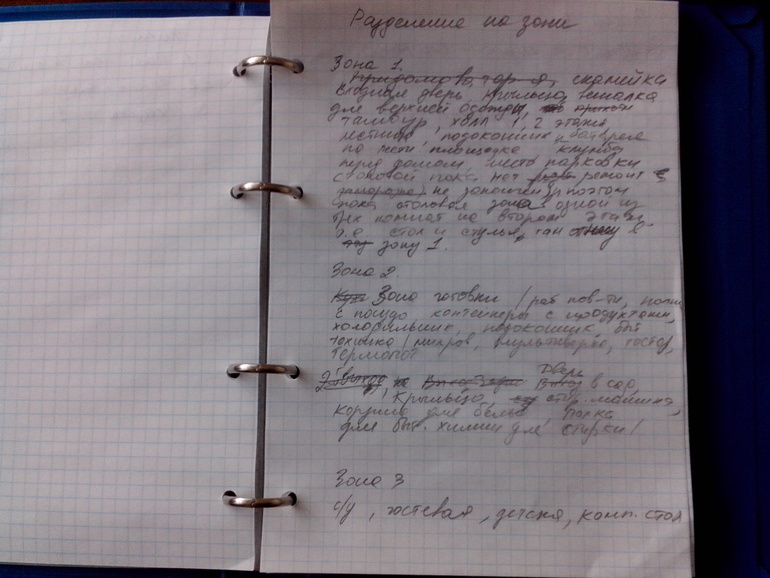 Разделение на зоны
Зона 1.
Придомова тер-я, скамейка
входная дверь, крыльцо, вешалка
для верхней одежды,
тамбур, холл 1, 2 этажа
лестница, подоконник, батарея
на лестн. площадке клумба
перед домом, место парковки
столовой пока нет ремонт
не закончен, поэтом
пока столовая зона в одной из
трех комнат на втором этаже
т.е. стол и стулья там
зону 1.
Зона 2.
Зона готовки /раб пов-ти, полки
с посудо контейнера с продуктами,
холодильник, подоконник, быт
техника /микров, мультиварка, тостер,
термопот
дверь
в сад,
крыльцо, стир. машина,
корзина для белья полка
для быт. химии для стирки/
Зона 3
с/у, гостевая, детская, комп. стол